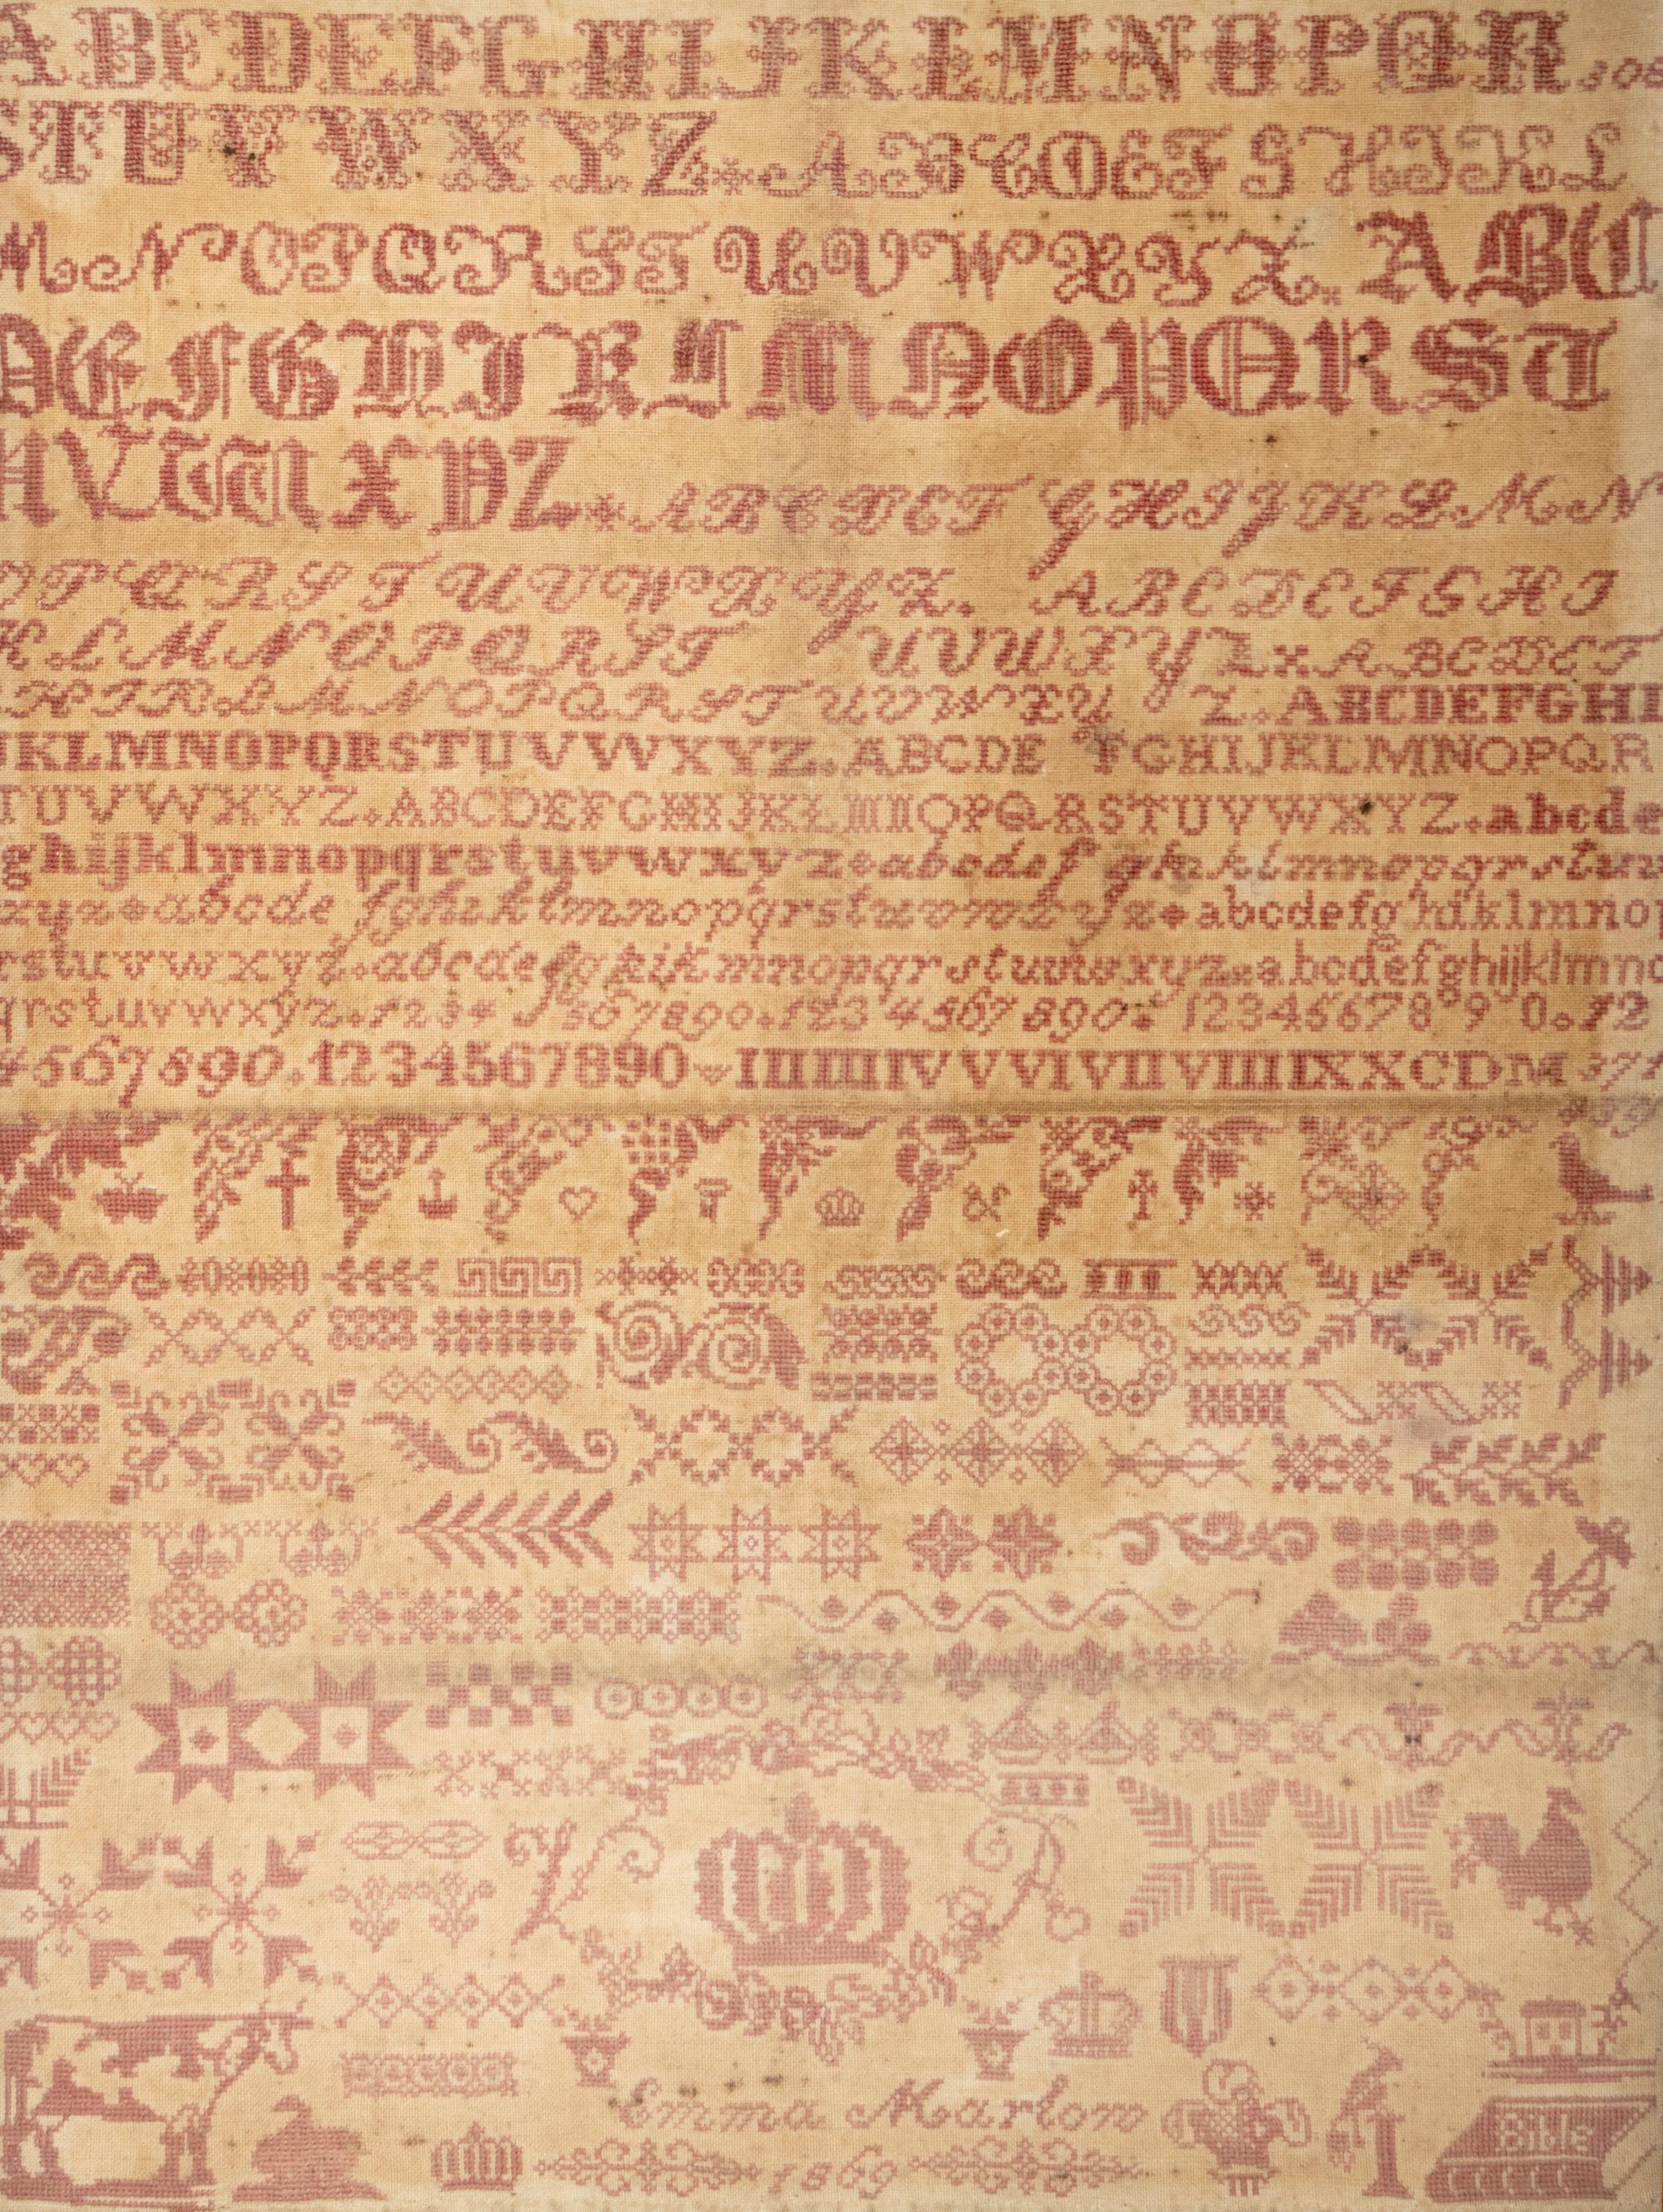 ABCDEFGHIJKLMNOPQR 308
STUVWXYZ ABCDEFGHIJKL
MNOPQRSTUVWXYZ. ABC
DEFGHIKLMNOPQRST
UVWXYZ ABCDEFGHIJKLMN
OPQRSTUVWXYZ. ABCDEFGHI
KLMNOPQRSTUVWXYZ ABCDEF
HIKLMNOPQRSTUVWXYZ. ABCDEFGHI
JKLMNOPQRSTUVWXYZ. ABCDEFGHIJKLMNOPQR
TUVWXYZ ABCDEFGHIJKLMNOPQRSTUVWXYZ abcde
ghijklmnopqrstuvwxyz abcdefghiklmnopqrstuv
xyz abcdefghiklmnopqrstuvwxyz abcdefghiklmnop
rstuvwxyz abcdefghiklmnopqrstuvwxyz abcdefghijklmno
qrstuvwxyz 1234ſ567890 1234567890 1234567890 12
4567890. 1234567890 I II III IIII IV V VI VII VIII IX X C D M 37
Emma Marlow
1869
Bible